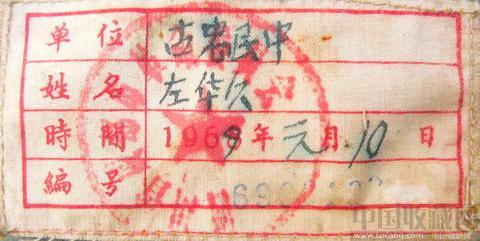 单位 古岩民中
姓名 左华久
時間 1969年元月10日
編号
中国收藏网
www.socang.com